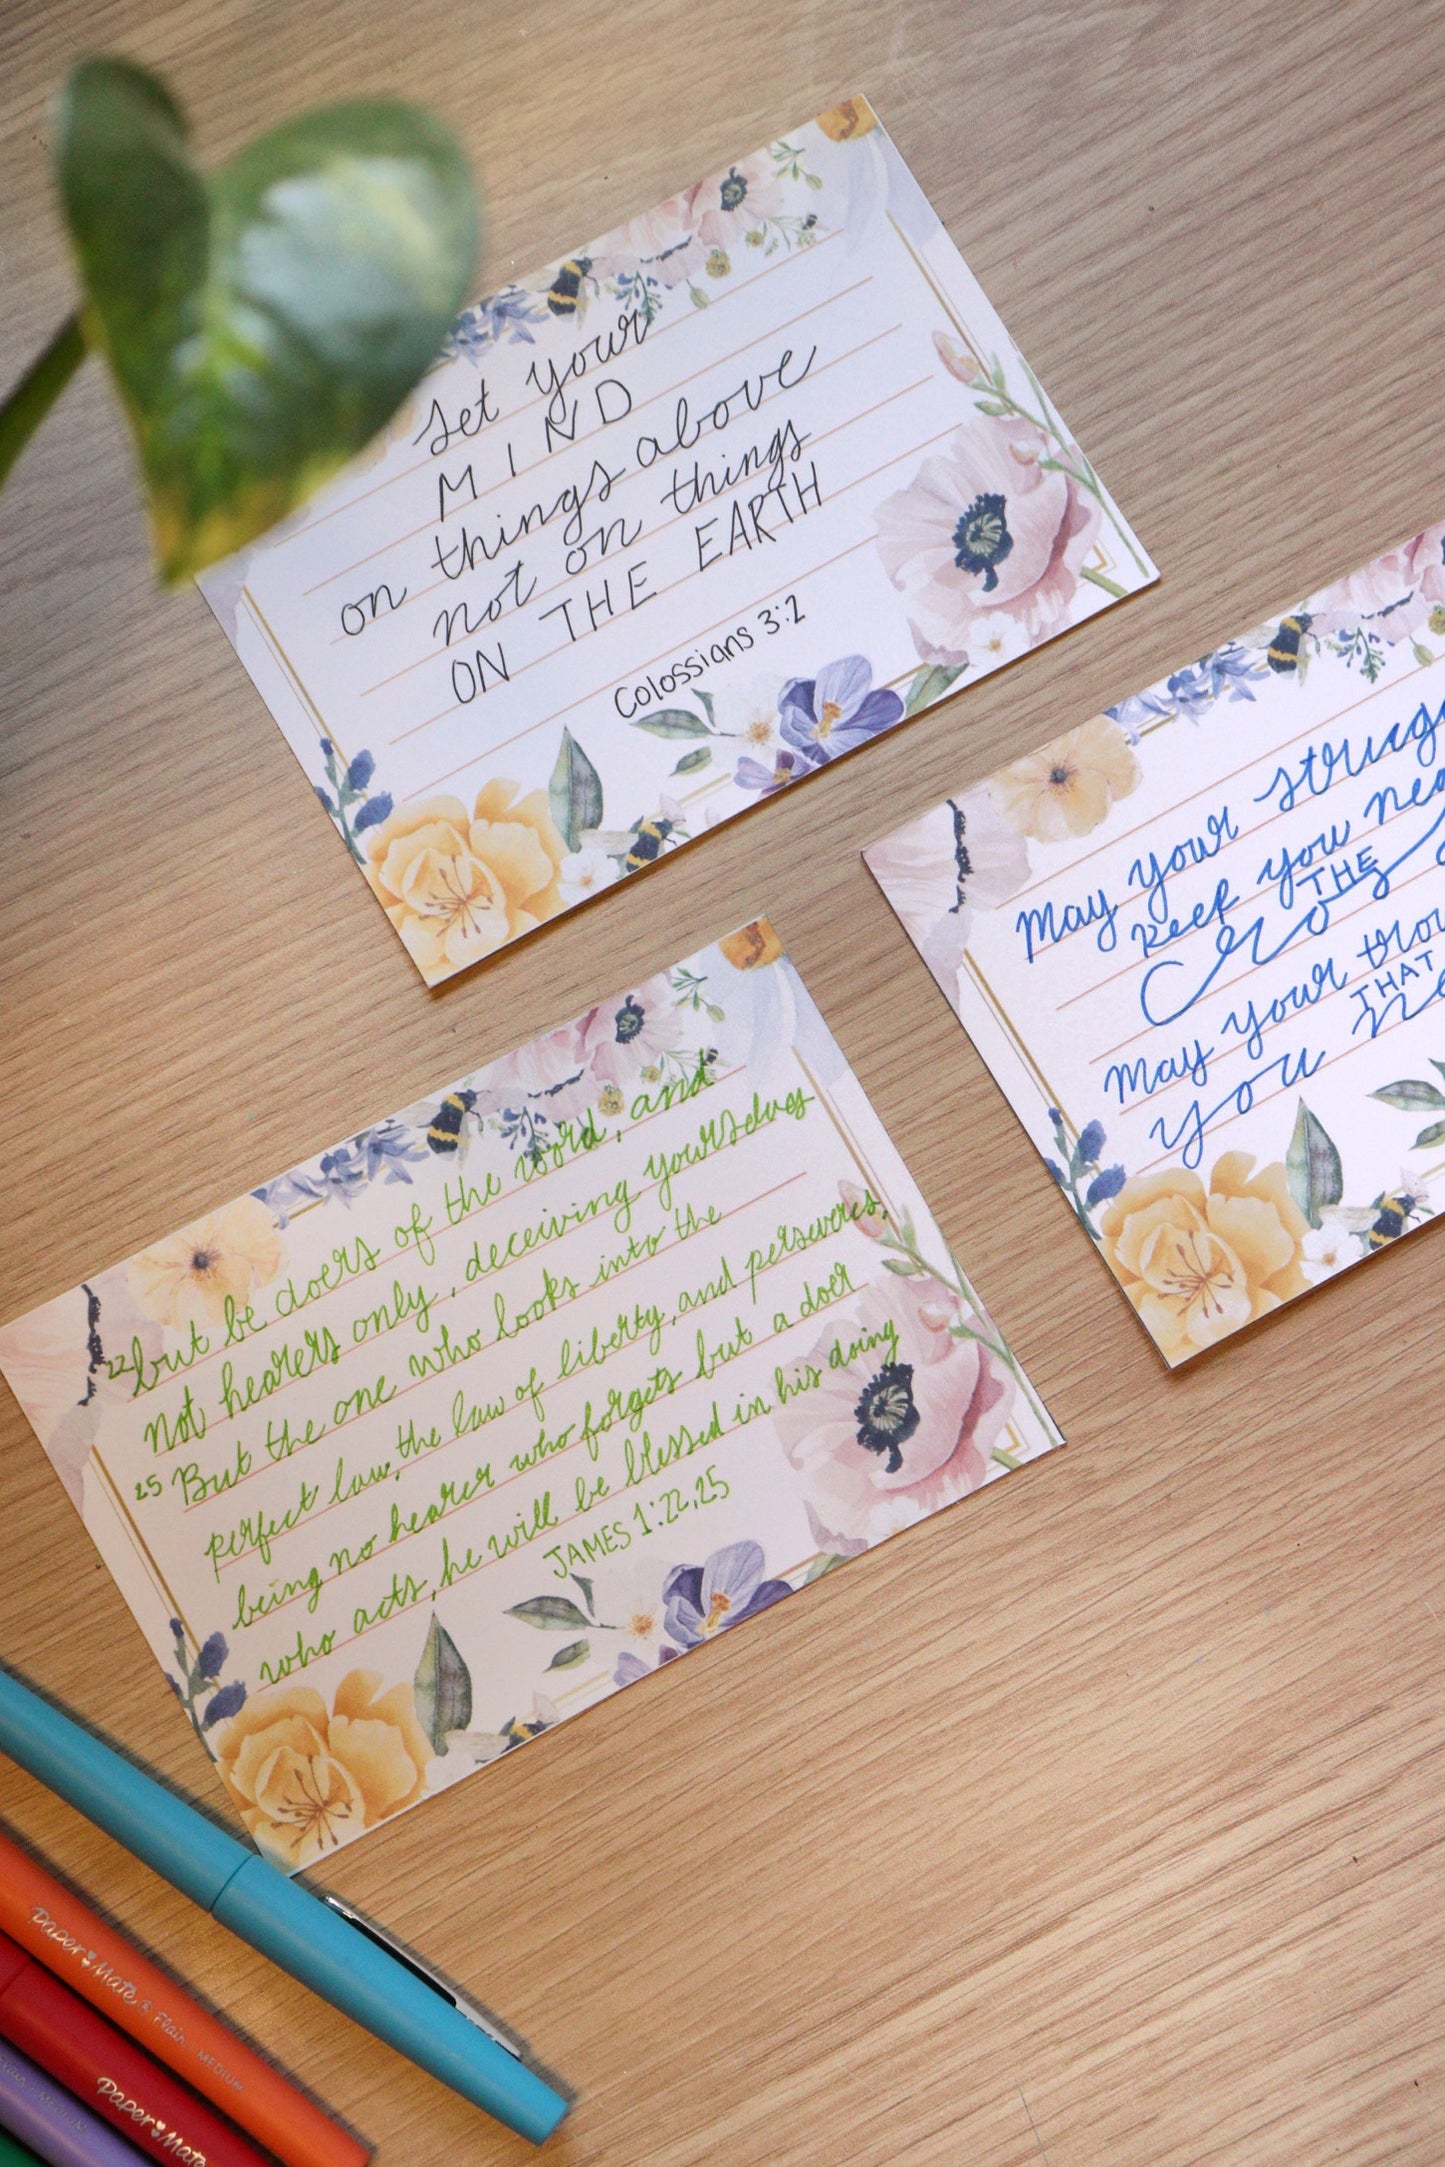 Set your
MIND
on things above
not on things
ON THE EARTH
Colossians 3:2
May your
keep you
THE
May your
THAT
you
22 but be doers of the word, and
not hearers only, deceiving yourselves
25 But the one who looks into the
perfect law, the law of liberty, and perseveres,
being no hearer who forgets but a doer
who acts, he will be blessed in his doing
JAMES 1:22,25
Paper Mate® Flair · MEDIUM
Paper Mate
MEDIUM